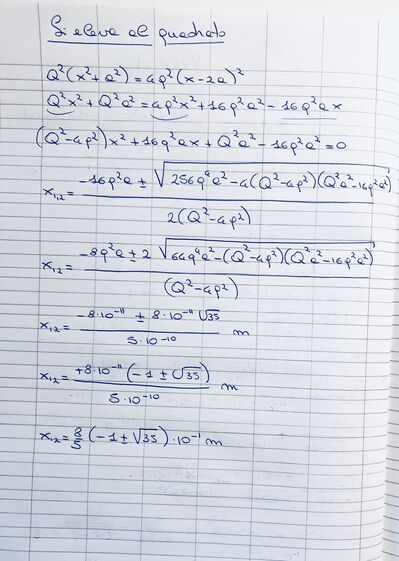 Si eleva al quadrato
Q²(x²+a²)=4q²(x-2a)²
Q²x²+Q²a²=4q²x²+16q²a²-16q²ax
(Q²-4q²)x²+16q²ax+Q²a²-16q²a²=0
x₁,₂= (-16q²a ± √(256q⁴a²-4(Q²-4q²)(Q²a²-16q²a²))) / (2(Q²-4q²))
x₁,₂= (-8q²a ± 2 √(64q⁴a²-(Q²-4q²)(Q²a²-16q²a²))) / (Q²-4q²)
x₁,₂= (-8·10⁻¹¹ ± 8·10⁻¹¹ √35) / (5·10⁻¹⁰) m
x₁,₂= (+8·10⁻¹¹(-1±√35)) / (5·10⁻¹⁰) m
x₁,₂= 8/5 (-1±√35)·10⁻¹ m